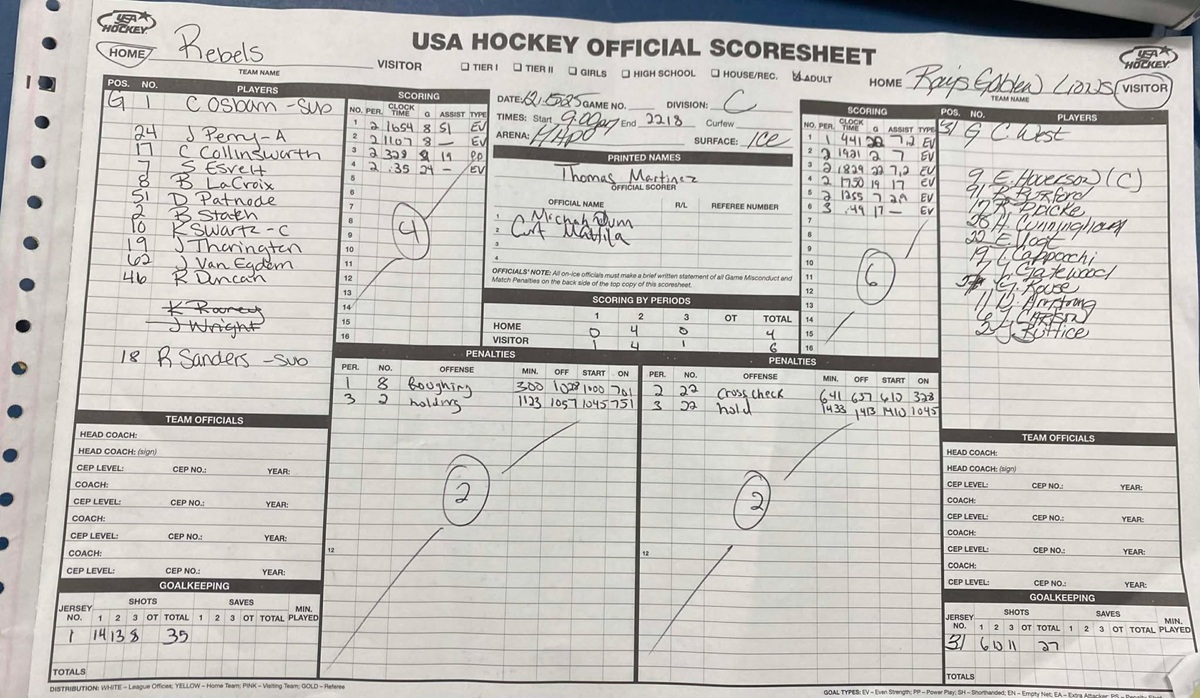 USA HOCKEY
USA HOCKEY OFFICIAL SCORESHEET
USA HOCKEY
HOME Rebels VISITOR
TEAM NAME
☐ TIER I ☐ TIER II ☐ GIRLS ☐ HIGH SCHOOL ☐ HOUSE/REC. ☑ ADULT
HOME Lions VISITOR
TEAM NAME
POS. NO. PLAYERS
G 1 C Osburn - Sub
24 J Perry - A
17 C Collinsworth
7 S Esvelt
8 B LaCroix
51 D Patnode
2 B Staten
10 K Swartz - C
19 J Tharington
62 J Van Egdem
46 R Duncan
J Wright
18 R Sanders - Sub
SCORING
NO. PER. CLOCK TIME G ASSIST TYPE
1 2 1654 8 51 EV
2 2 1107 8 — EV
3 2 328 8 19 PP
4 2 .35 24 - EV
5
6
7
8
9
10
11
12
13
14
15
16
4
DATE: GAME NO. DIVISION: C
TIMES: Start 9:00pm End 2218 Curfew
ARENA: SURFACE: ICE
PRINTED NAMES
Thomas Martinez
OFFICIAL SCORER
OFFICIAL NAME R/L REFEREE NUMBER
1
2 Curt Mattila
3
4
OFFICIALS' NOTE: All on-ice officials must make a brief written statement of all Game Misconduct and
Match Penalties on the back side of the top copy of this scoresheet.
SCORING BY PERIODS
1 2 3 OT TOTAL
HOME 0 4 0 4
VISITOR 1 4 1 6
SCORING
NO. PER. CLOCK TIME G ASSIST TYPE
1 1 441 22 7,2 EV
2 2 1921 2 7 EV
3 2 1829 22 7,2 EV
4 2 1750 19 17 EV
5 2 1255 7 EV
6 3 .49 17 — EV
7
8
9
10
11
12
13
14
15
16
6
POS. NO. PLAYERS
31 G C. West
9 (C)
J. Buttice
PENALTIES
PER. NO. OFFENSE MIN. OFF START ON
1 8 Roughing 300 1028 1000 701
3 2 holding 1123 1057 1045 751
2
12
PENALTIES
PER. NO. OFFENSE MIN. OFF START ON
2 22 Cross check 641 657 612 328
3 22 hold 1433 1413 1410 1045
2
12
TEAM OFFICIALS
HEAD COACH:
HEAD COACH: (sign)
CEP LEVEL: CEP NO.: YEAR:
COACH:
CEP LEVEL: CEP NO.: YEAR:
COACH:
CEP LEVEL: CEP NO.: YEAR:
COACH:
CEP LEVEL: CEP NO.: YEAR:
GOALKEEPING
JERSEY NO. SHOTS 1 2 3 OT TOTAL SAVES 1 2 3 OT TOTAL MIN. PLAYED
1 14 13 8 35
TOTALS
TEAM OFFICIALS
HEAD COACH:
HEAD COACH: (sign)
CEP LEVEL: CEP NO.: YEAR:
COACH:
CEP LEVEL: CEP NO.: YEAR:
COACH:
CEP LEVEL: CEP NO.: YEAR:
COACH:
CEP LEVEL: CEP NO.: YEAR:
GOALKEEPING
JERSEY NO. SHOTS 1 2 3 OT TOTAL SAVES 1 2 3 OT TOTAL MIN. PLAYED
31 6 10 11 27
TOTALS
DISTRIBUTION: WHITE – League Offices; YELLOW – Home Team; PINK – Visiting Team; GOLD – Referee
GOAL TYPES: EV – Even Strength; PP – Power Play; SH – Shorthanded; EN – Empty Net; EA – Extra Attacker;